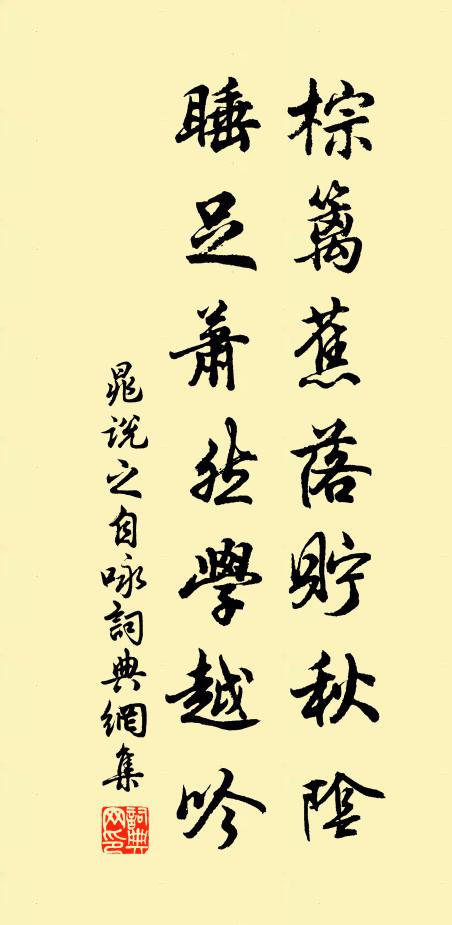 棕籬蕉落貯秋陰
睡足蕭然學越吟
晁說之自咏詞典網集
詞典网印